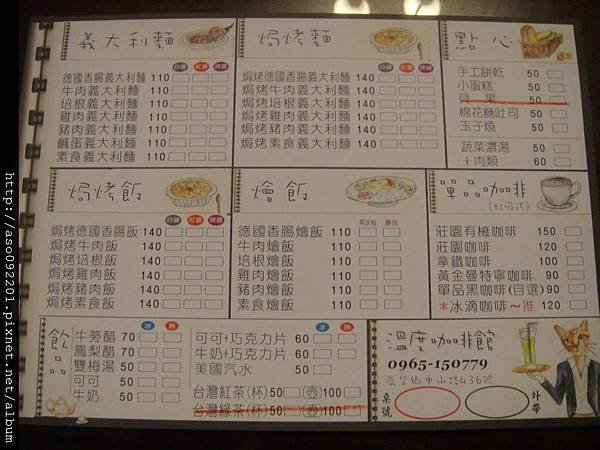 義大利麵
德國香腸義大利麵 110
牛肉義大利麵 110
培根義大利麵 110
雞肉義大利麵 110
豬肉義大利麵 110
鹹蛋義大利麵 110
素食義大利麵 110
焗烤麵
焗烤德國香腸義大利麵 140
焗烤牛肉義大利麵 140
焗烤培根義大利麵 140
焗烤雞肉義大利麵 140
焗烤豬肉義大利麵 140
焗烤素食義大利麵 140
點心
手工餅乾 50
小蛋糕 50
貝果 50
棉花糖吐司 50
玉子燒 50
蔬菜濃湯 50
+肉類 60
焗烤飯
焗烤德國香腸飯 140
焗烤牛肉飯 140
焗烤培根飯 140
焗烤雞肉飯 140
焗烤豬肉飯 140
焗烤素食飯 140
燴飯
德國香腸燴飯 110
牛肉燴飯 110
培根燴飯 110
雞肉燴飯 110
豬肉燴飯 110
素食燴飯 110
單品咖啡
(虹吸式)
莊園有機咖啡 150
莊園咖啡 120
拿鐵咖啡 100
黃金曼特寧咖啡 90
單品黑咖啡(自選) 90
*冰滴咖啡~推 120
飲品
冰 熱
牛蒡醋 70
鳳梨醋 70
雙梅湯 50
可可 50
牛奶 50
冰 熱
可可+巧克力片 60
牛奶+巧克力片 60
美國汽水 50
台灣紅茶(杯)50 (壺)100
台灣綠茶(杯)50 (壺)100
溫度咖啡館
0965-150779
中山路436號
桌號
外帶
http://aso092201.pixnet.net/album